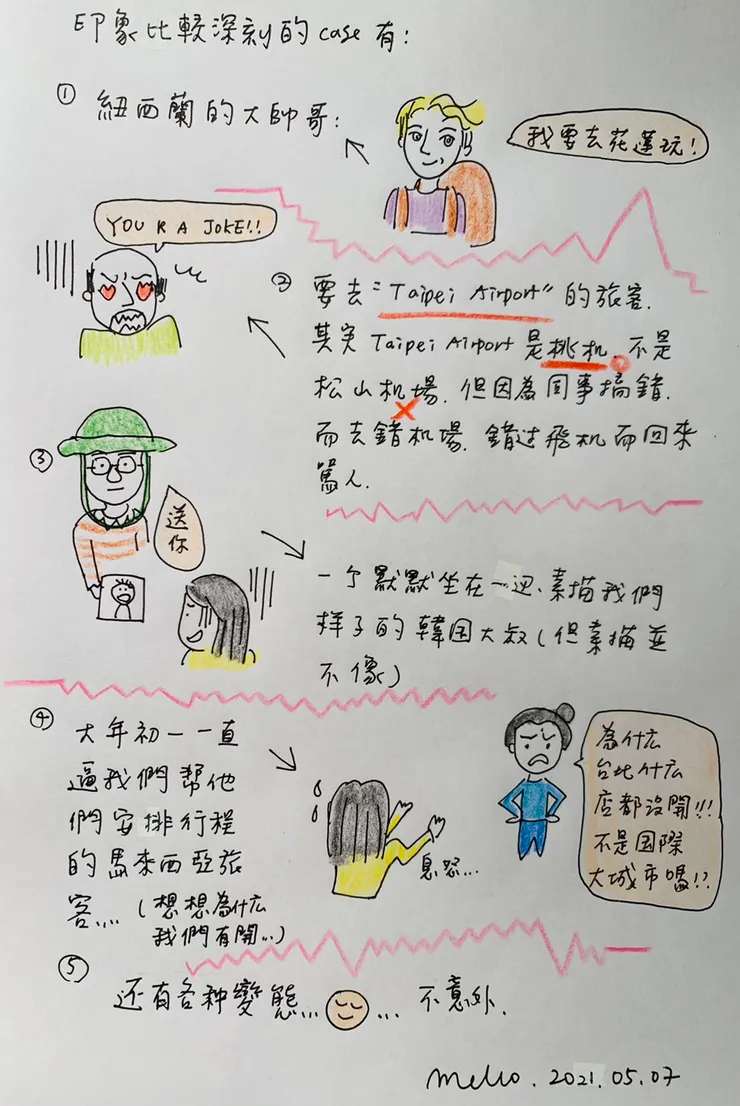 印象比較深刻的case有:
① 紐西蘭的大帥哥:
我要去花蓮玩!
YOU R A JOKE!!
② 要去"Taipei Airport"的旅客.
其实Taipei Airport是桃机,不是
松山机場.但因為同事搞錯.
而去錯机場.錯过飛机而回來
罵人.
③
送
你
一个默默坐在一边、素描我們
样子的韓国大叔(但素描並
不像)
④ 大年初一一直
逼我們幫他
們安排行程
的馬來西亞旅
客... (想想為什么
我們有開...)
息怒...
為什么
台北什么
店都沒開!!!
不是国際
大城市嗎!!?
⑤ 还有各种變態... ... 不意外.
2021.05.07